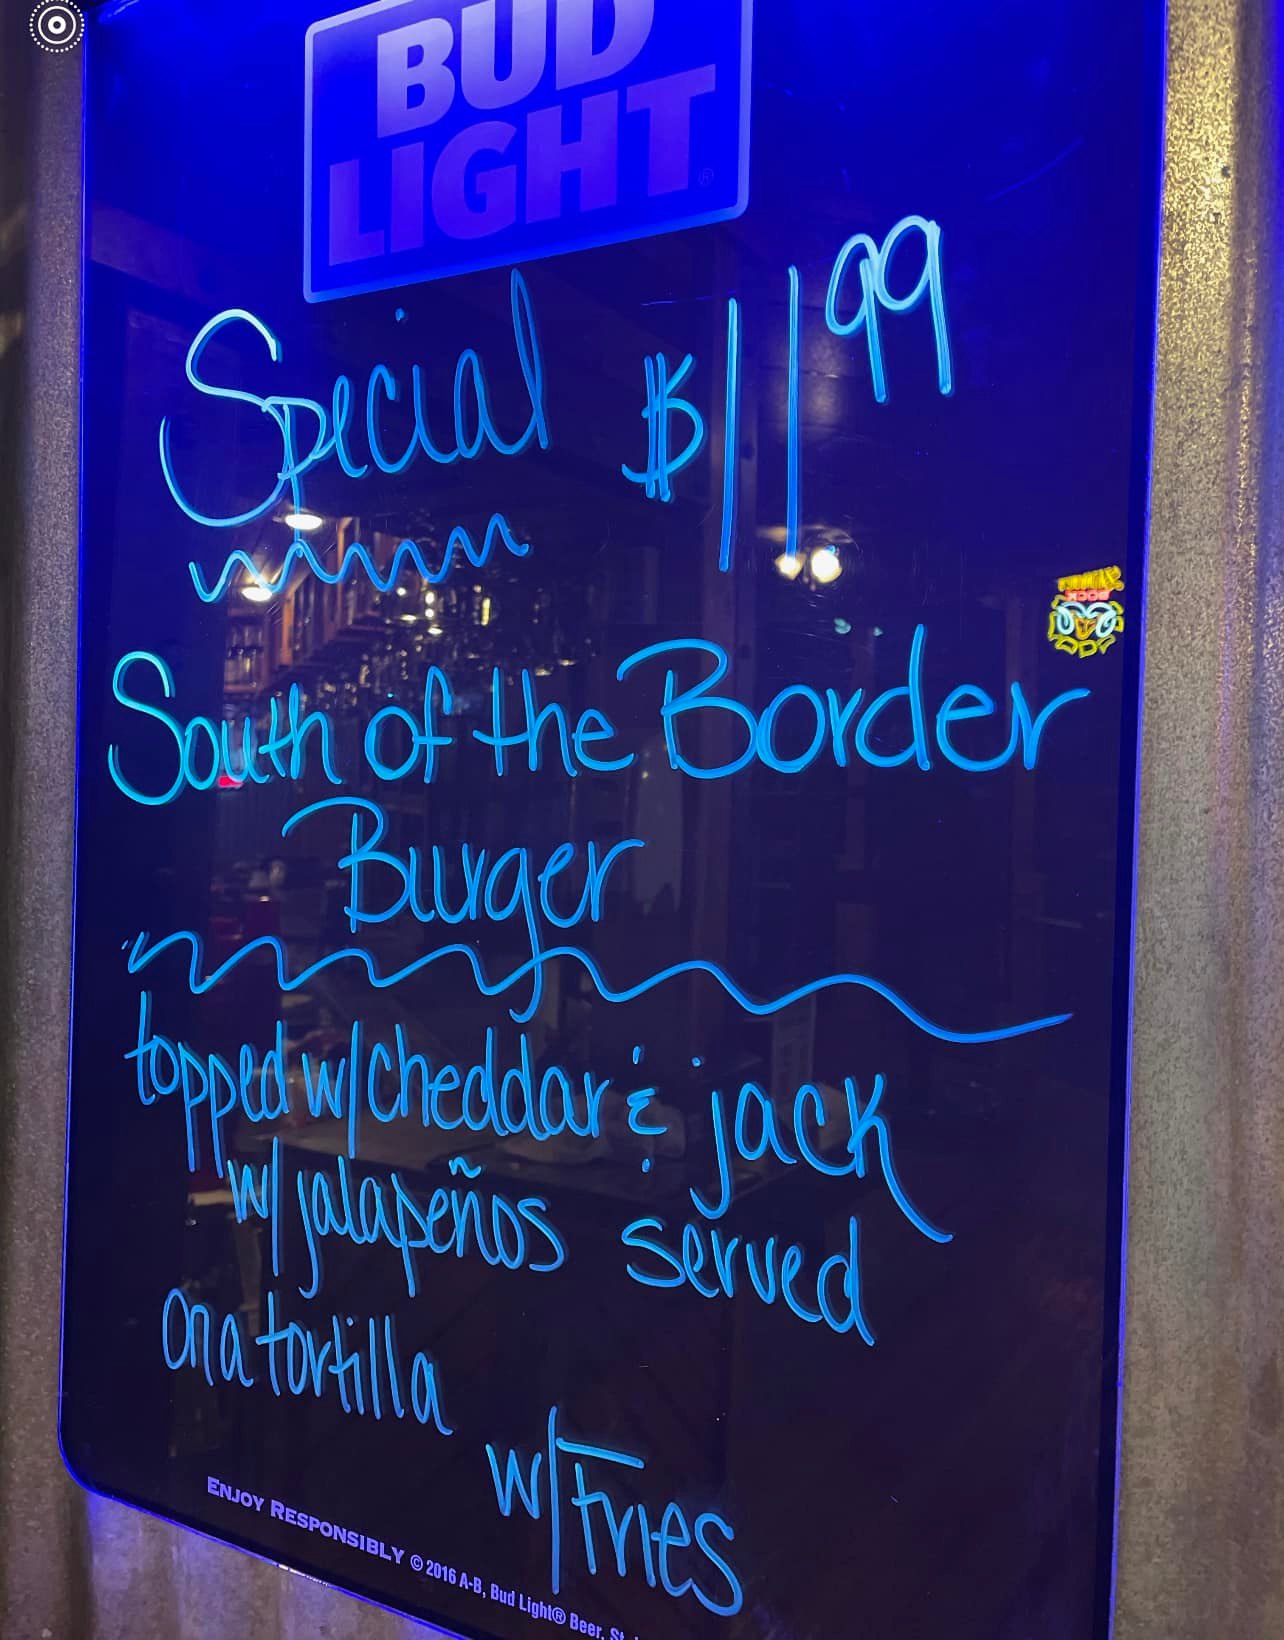 BUD
LIGHT®
Special $11 99
South of the Border
Burger
topped w/cheddar & jack
w/jalapeños served
on a tortilla
w/Fries
ENJOY RESPONSIBLY © 2016 A-B, Bud Light® Beer, St.